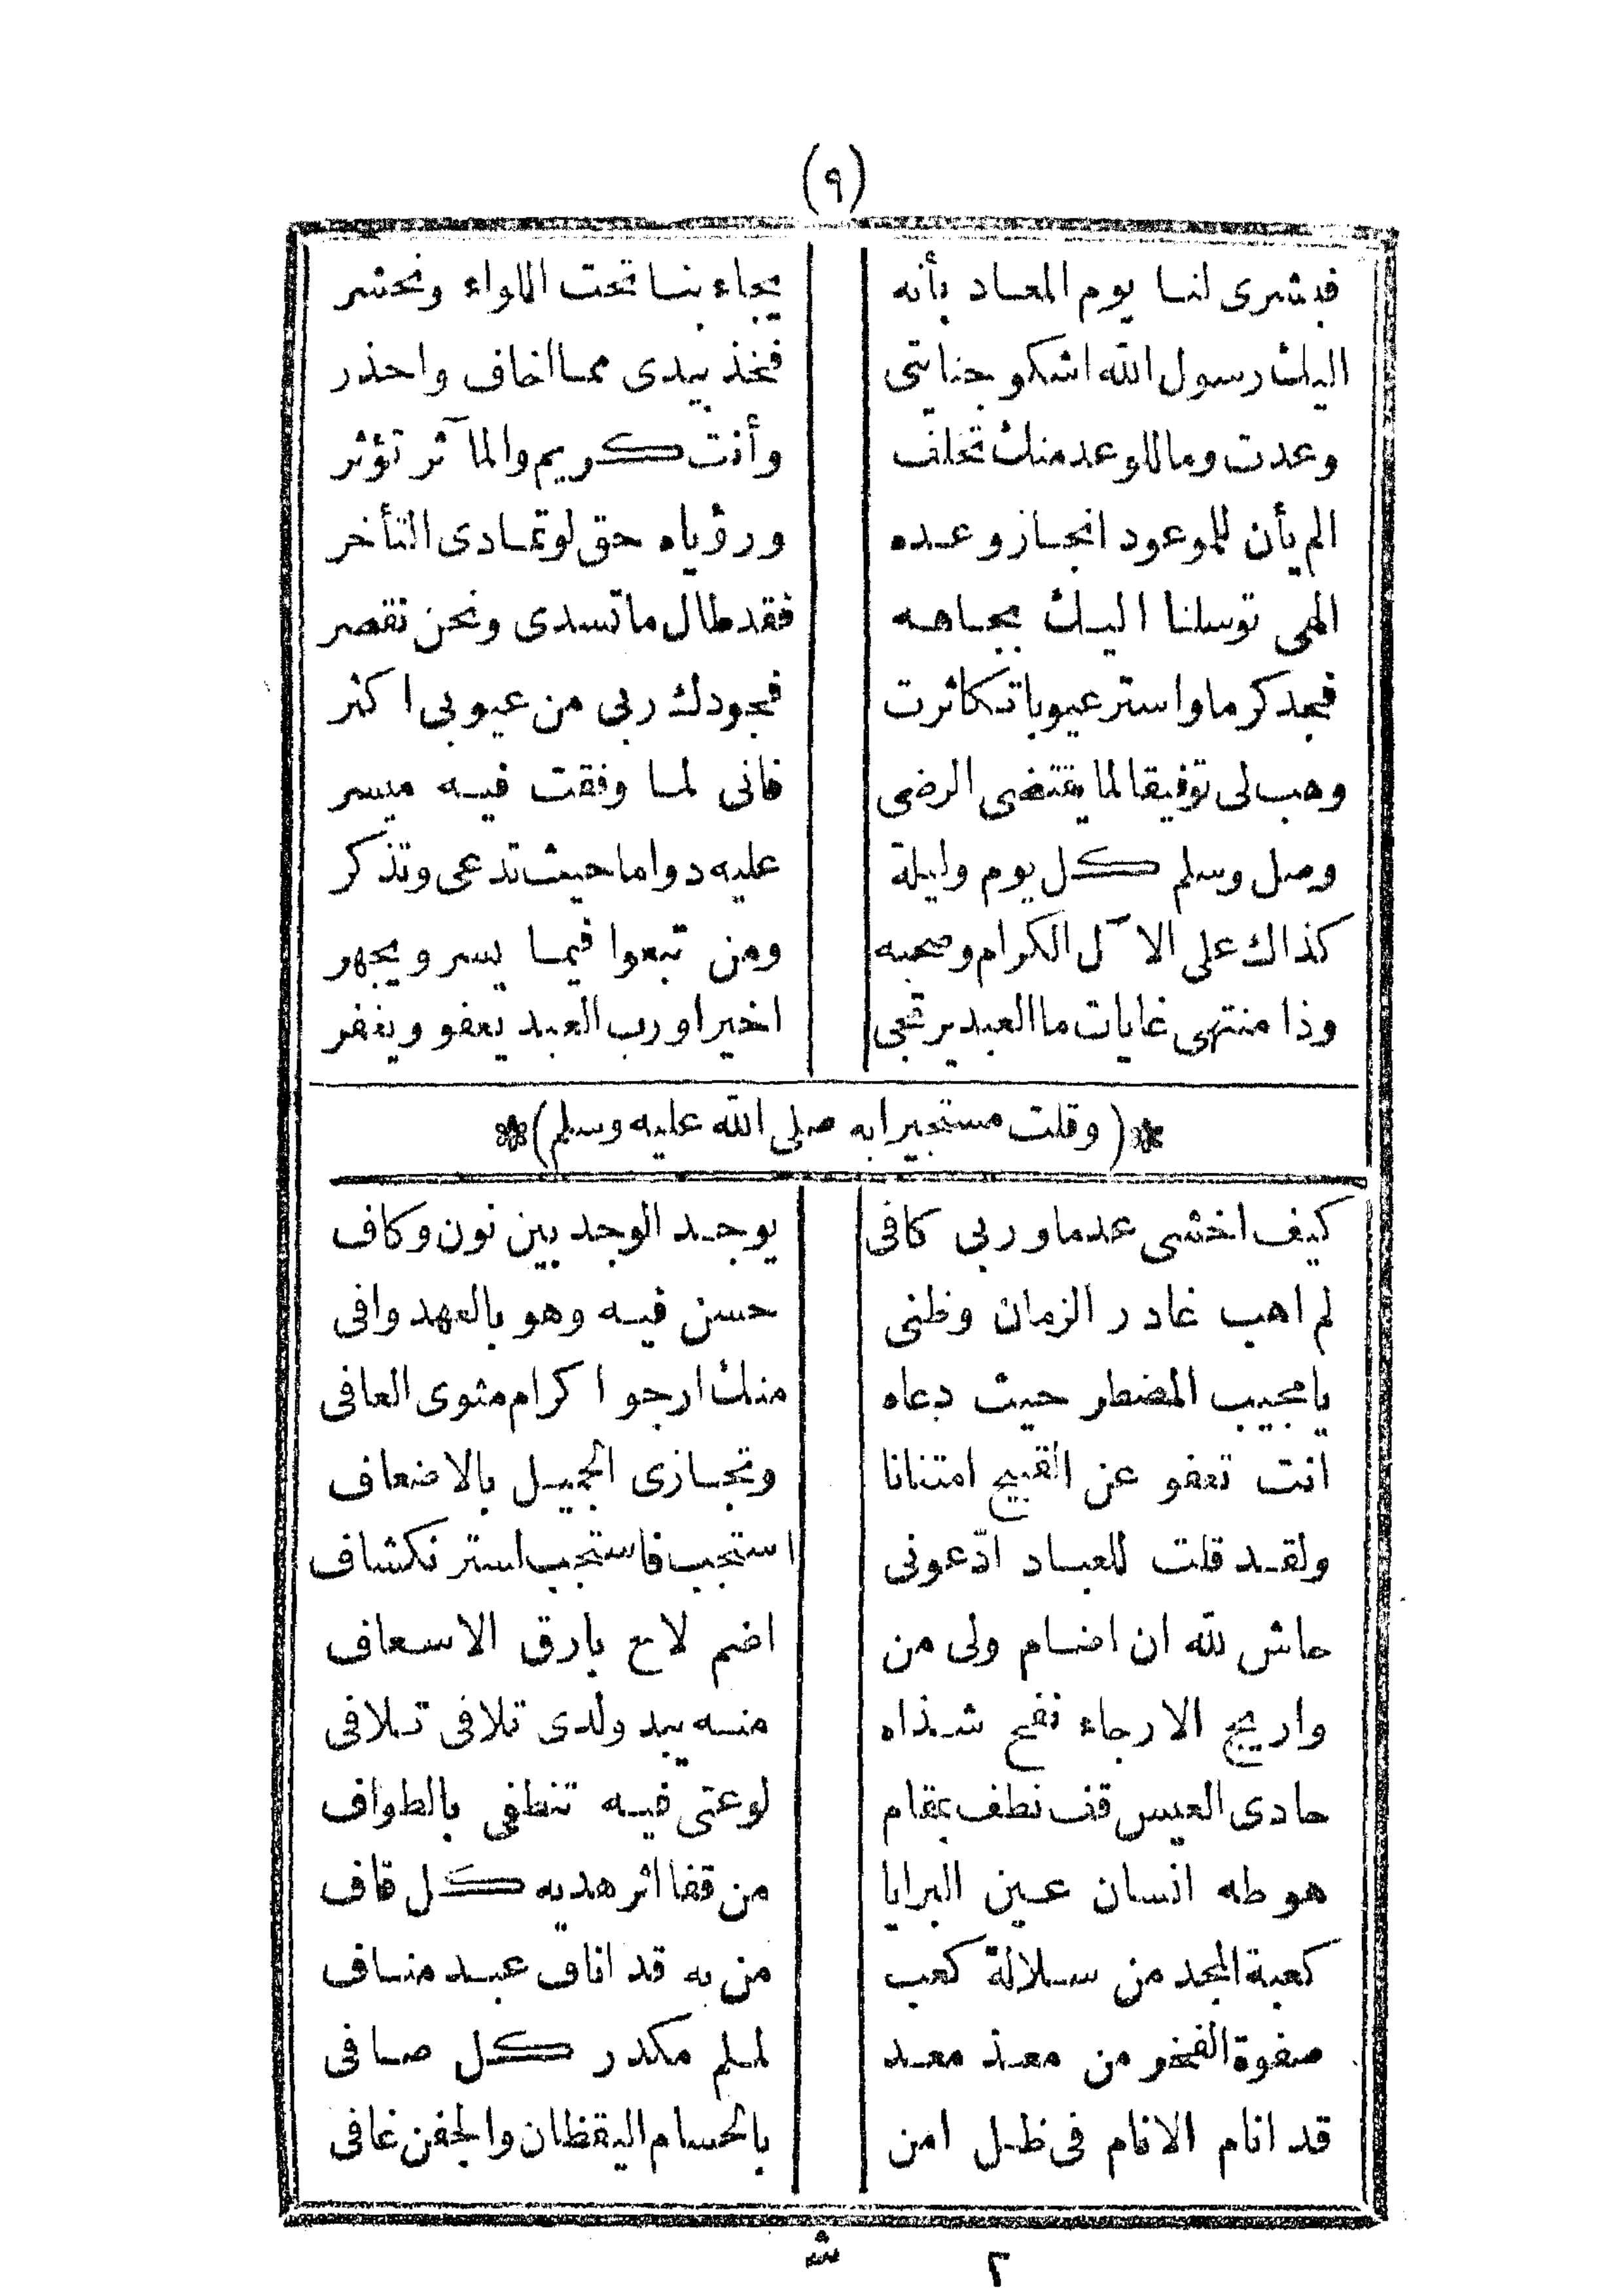 (٩)
فبشرى لنا يوم المعاد بأنه يجاء بنا تحت اللواء ونحشر
اليك رسول الله اشكو جنايتى فخذ بيدى مما اخاف واحذر
وعدت وما للوعد منك تخلف وأنت كريم والمآثر تؤثر
الم يأن للموعود انجاز وعده ورؤياه حق لو تمادى التأخر
الهى توسلنا اليك بجاهه فقد طال ما تسدى ونحن نقصر
فجد كرما واستر عيوبا تكاثرت فجودك ربى من عيوبى اكثر
وهب لى توفيقا لما يقتضى الرضى فانى لما وفقت فيه ميسر
وصل وسلم كل يوم وليلة عليه دواما حيث تدعى وتذكر
كذاك على الآل الكرام وصحبه ومن تبعوا فيما يسر ويجهر
وذا منتهى غايات ما العبد يرتجى اخيرا ورب العبد يعفو ويغفر
*(وقلت مستجيرا به صلى الله عليه وسلم)*
كيف اخشى عدما وربى كافى يوجد الوجد بين نون وكاف
لم اهب غادر الزمان وظنى حسن فيه وهو بالعهد وافى
يا مجيب المضطر حيث دعاه منك ارجو اكرام مثوى العافى
انت تعفو عن القبيح امتنانا وتجازى الجميل بالاضعاف
ولقد قلت للعباد ادّعونى استجب فاستجب استر نكشاف
حاش لله ان اضام ولى من اضم لاح بارق الاسعاف
واريج الارجاء نفح شذاه منه يبد ولدى تلافى تلافى
حادى العيس قف نطف بمقام لوعتى فيه تنطفى بالطواف
هو طه انسان عين البرايا من قفا اثر هديه كل قاف
كعبة المجد من سلالة كعب من به قد اناف عبد مناف
صفوة الفخر من معد معد لملم مكدر كل صافى
قد انام الانام فى ظل امن بالحسام اليقظان والجفن غافى
٢ ش